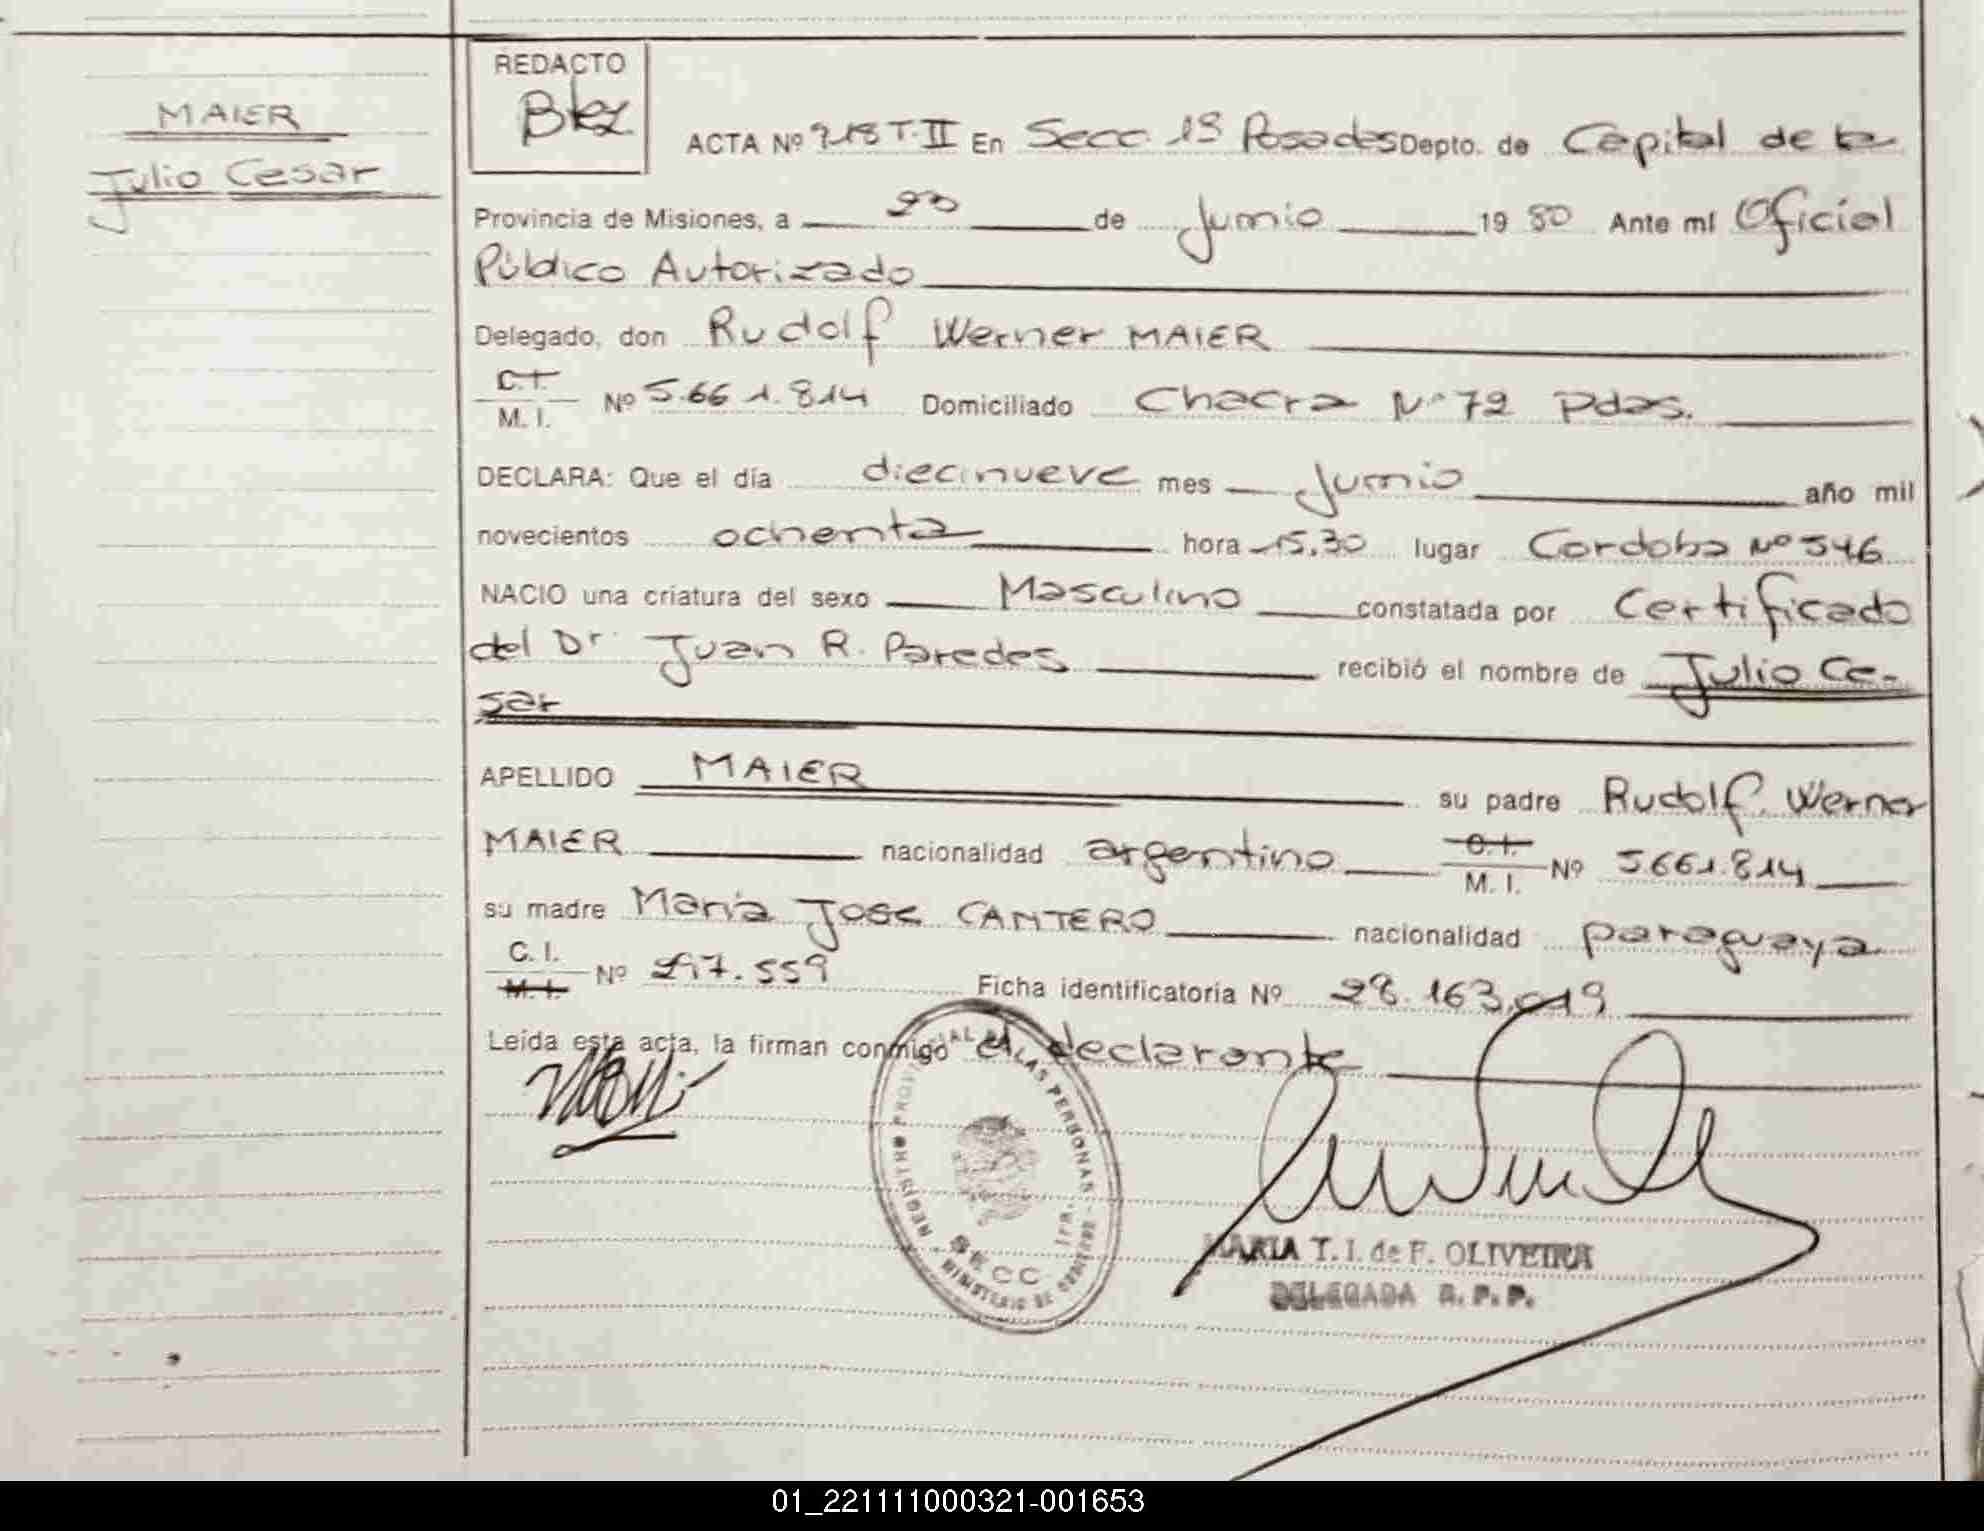 REDACTO
MAIER
Julio Cesar
ACTA Nº 918 T. II En Secc. 1ª Posadas Depto. de Capital de la
Provincia de Misiones, a 20 de Junio 19 80 Ante mí Oficial
Público Autorizado
Delegado, don Rudolf Werner MAIER
C. I.
M. I. Nº 5.661.814 Domiciliado Chacra Nº 72 Pdas.
DECLARA: Que el día diecinueve mes Junio año mil
novecientos ochenta hora 15,30 lugar Cordoba Nº 546
NACIO una criatura del sexo Masculino constatada por Certificado
del Dr. Juan R. Paredes recibió el nombre de Julio Ce-
sar
APELLIDO MAIER su padre Rudolf Werner
MAIER nacionalidad argentino C. I.
M. I. Nº 5.661.814
su madre María José CANTERO nacionalidad paraguaya
C. I.
M. I. Nº 247.559 Ficha identificatoria Nº 28.163.019
Leída esta acta, la firman conmigo el declarante
REGISTRO PROVINCIAL DE LAS PERSONAS
MINISTERIO DE GOBIERNO
SECC 1ra.
MARIA T. I. de F. OLIVEIRA
DELEGADA R. P. P.
01_221111000321-001653